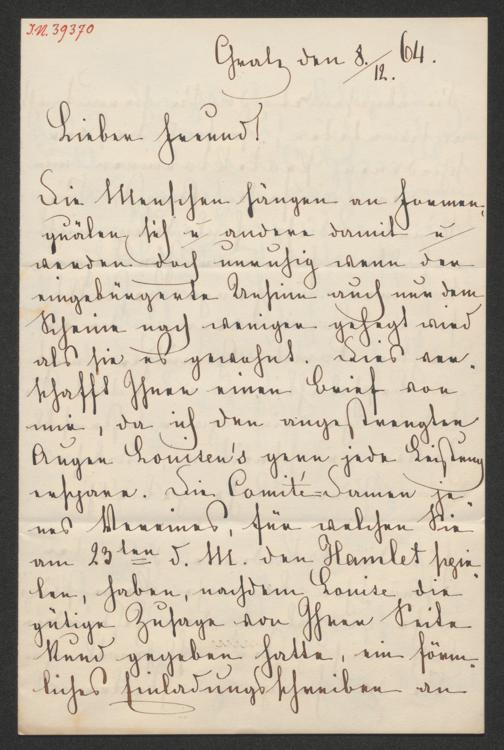 I.N. 39370
Gratz den 8./12. 64.
Lieber Freund!
Die Menschen hängen an Formen,
quälen sich u andere damit u
werden doch unruhig wenn der
eingebürgerte Unsinn auch nur dem
Scheine nach weniger gehegt wird
als sie es gewohnt. Dies ver-
schafft Ihnen einen Brief von
mir, da ich den angestrengten
Augen Louisen's gern jede Leistung
erspare. Die Comité-Damen je-
nes Vereines, für welchen Sie
am 23ten d. M. den Hamlet spie-
len, haben, nachdem Louise die
gütige Zusage von Ihrer Seite
kund gegeben hatte, ein förm-
liches Einladungsschreiben an